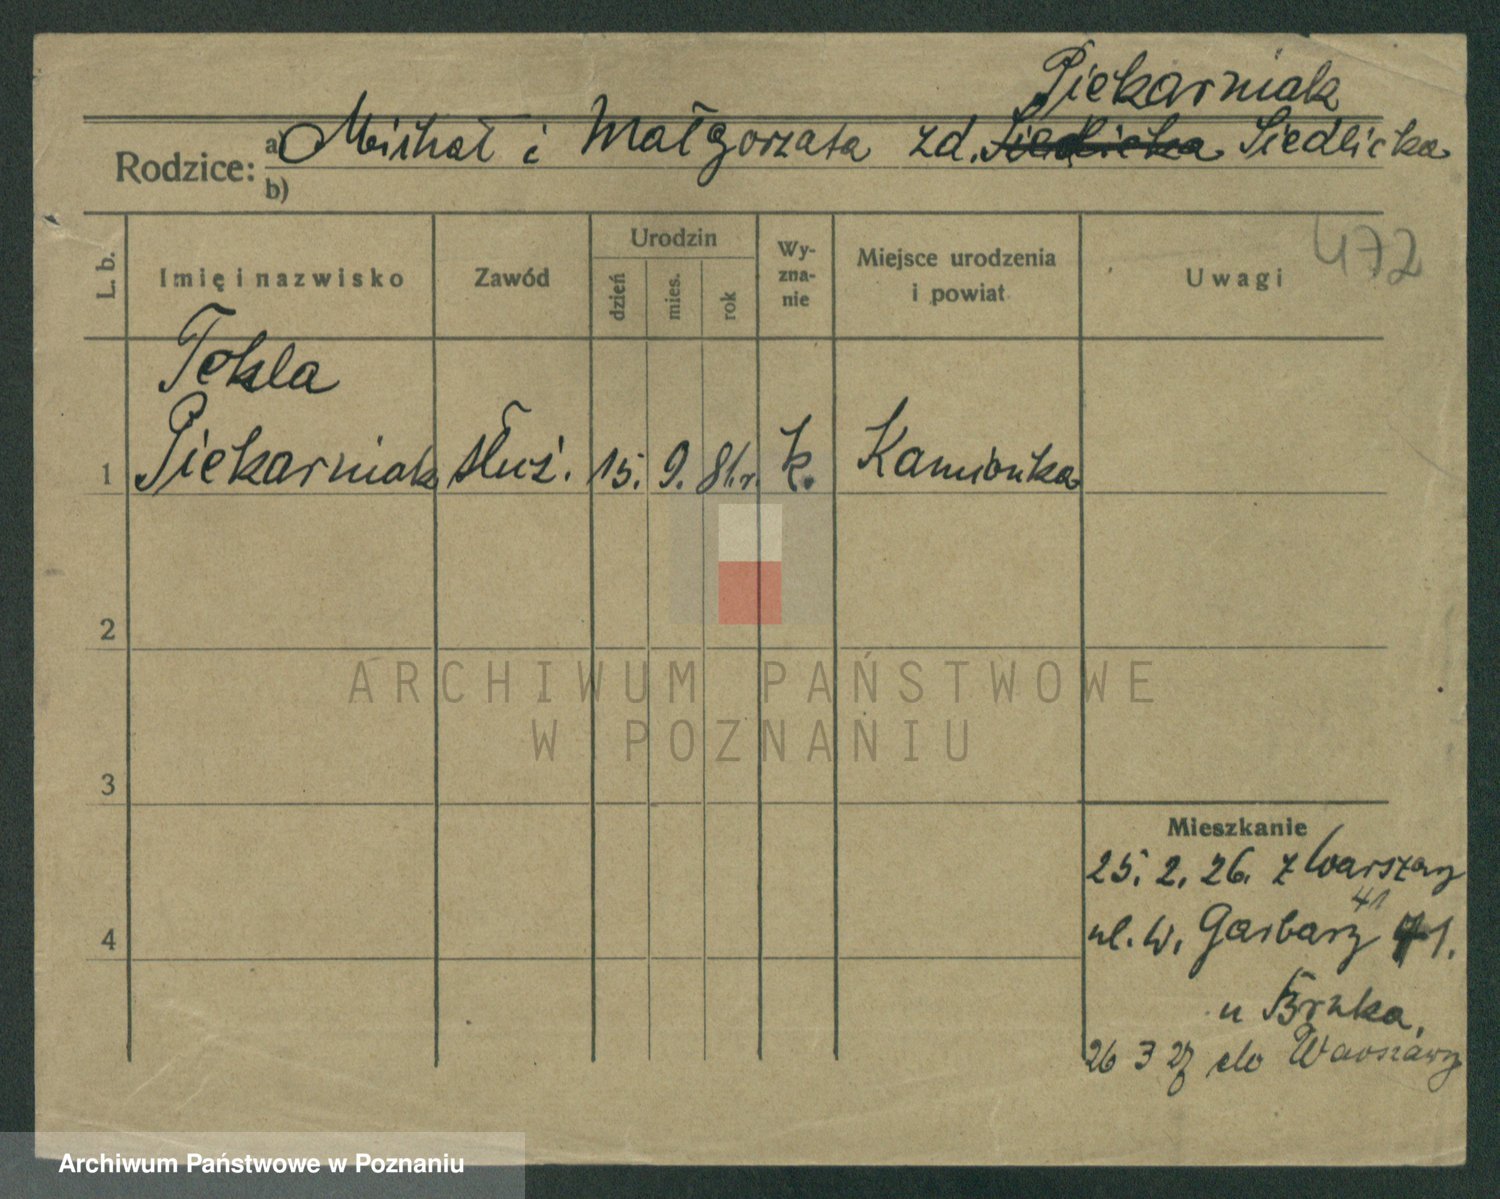 Piekarniak
Rodzice: a) Michał i Małgorzata zd. Siedlicka Siedlicka
b)
L. b.
Imię i nazwisko
Zawód
Urodzin
dzień
mies.
rok
Wy-
zna-
nie
Miejsce urodzenia
i powiat
Uwagi
472
Tekla
1 Piekarniak służ. 15. 9. 81.r. k. Kamionka
2
ARCHIWUM PAŃSTWOWE
W POZNANIU
3
Mieszkanie
25. 2. 26. z Warszawy
41
ul. W. Garbary 71.
4
u Bruka.
26 3 27 do Warszawy
Archiwum Państwowe w Poznaniu